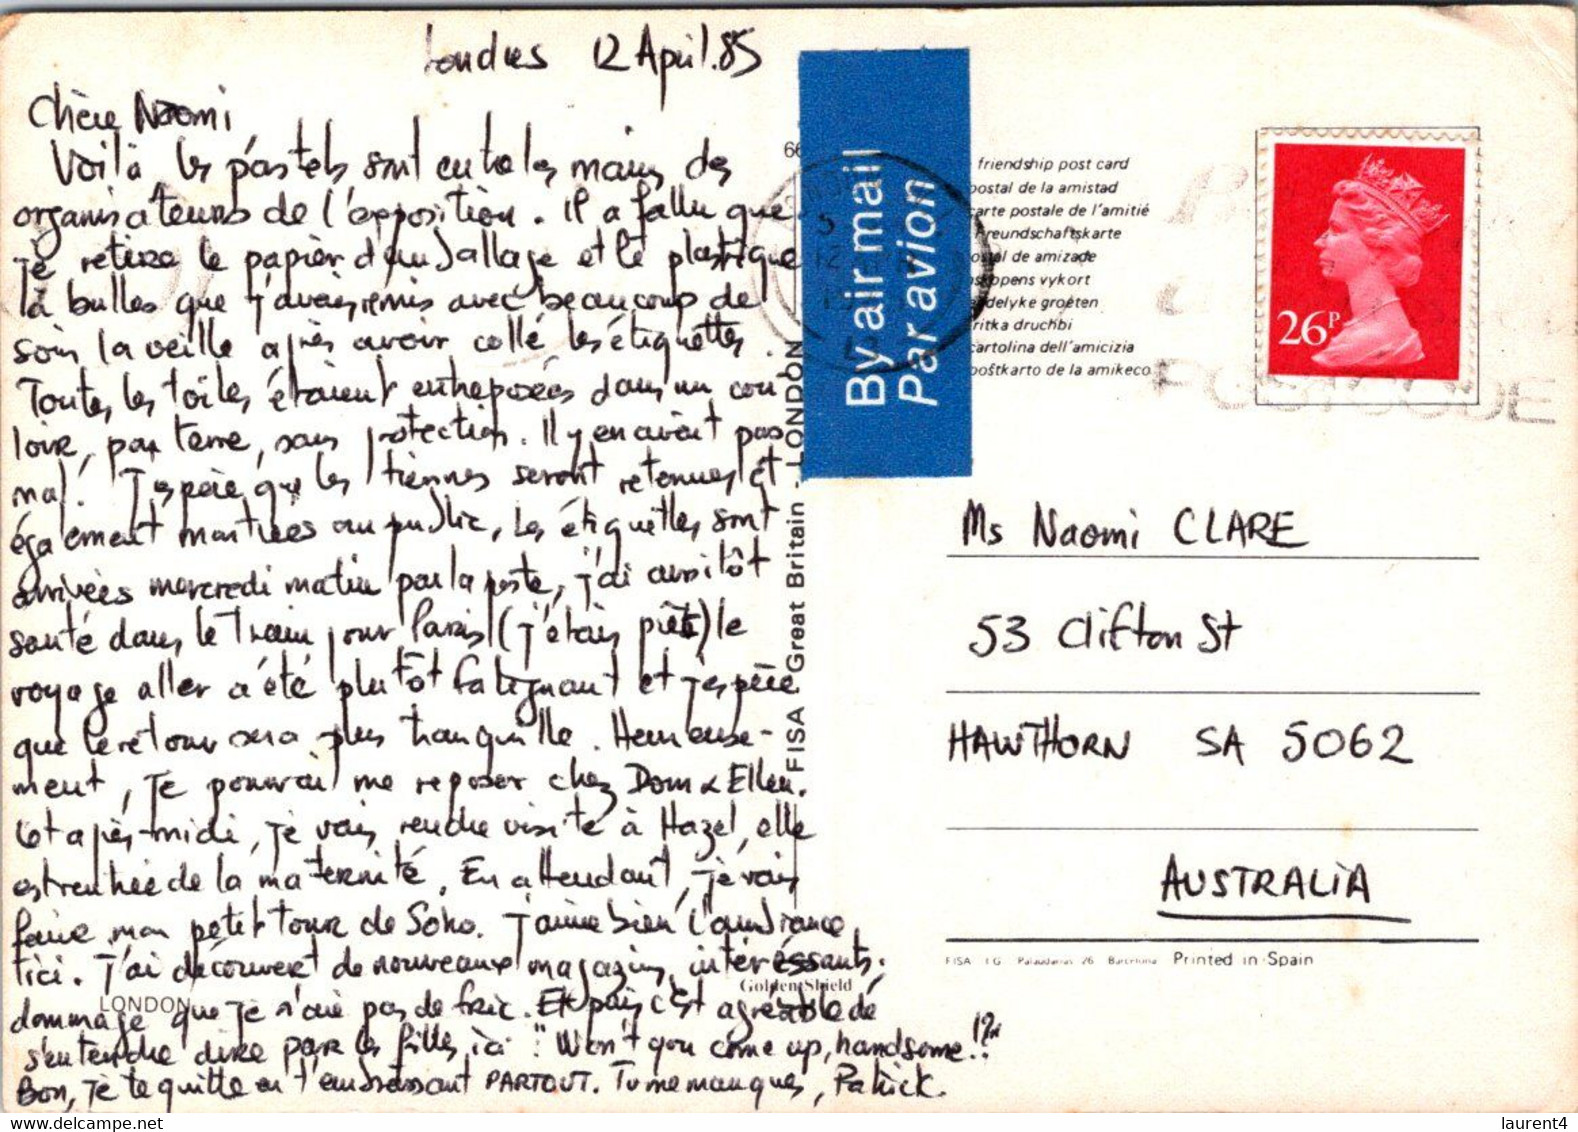 Londres 12 April.85
Chère Naomi
Voilà les pastels sont entre les mains des
organisateurs de l'exposition. Il a fallu que
je retire le papier d'emballage et le plastique
à bulles que j'avais remis avec beaucoup de
soin la veille après avoir collé les étiquettes.
Toutes les toiles étaient entreposées dans un cou-
loir, par terre, sans protection. Il y en avait pas
mal. J'espère que les tiennes seront retenues et
également montrées au public, les étiquettes sont
arrivées mercredi matin par la poste, j'ai aussitôt
sauté dans le train pour Paris (j'étais prêt) le
voyage aller a été plutôt fatiguant et j'espère
que le retour sera plus tranquille. Heureuse-
ment, je pouvais me reposer chez Dom & Ellen.
Cet après-midi, je vais rendre visite à Hazel, elle
est rentrée de la maternité. En attendant, je vais
faire mon petit tour de Soho. J'aime bien l'ambiance
ici. J'ai découvert de nouveaux magasins intéressants,
dommage que je n'aie pas de fric. Et puis c'est agréable de
s'entendre dire par les filles ici : "Won't you come up, handsome!?"
Bon, je te quitte en t'embrassant PARTOUT. Tu me manques, Patrick.
LONDON
Golden Shield
FISA Great Britain - LONDON
66
By air mail
Par avion
friendship post card
postal de la amistad
carte postale de l'amitié
Freundschaftskarte
postal de amizade
vykort
groeten
druchbi
cartolina dell'amicizia
poŝtkarto de la amikeco
26P
POSTCODE
Ms Naomi CLARE
53 Clifton St
HAWTHORN SA 5062
AUSTRALIA
FISA I.G. Palaudarias 26 Barcelona Printed in Spain
laurent4